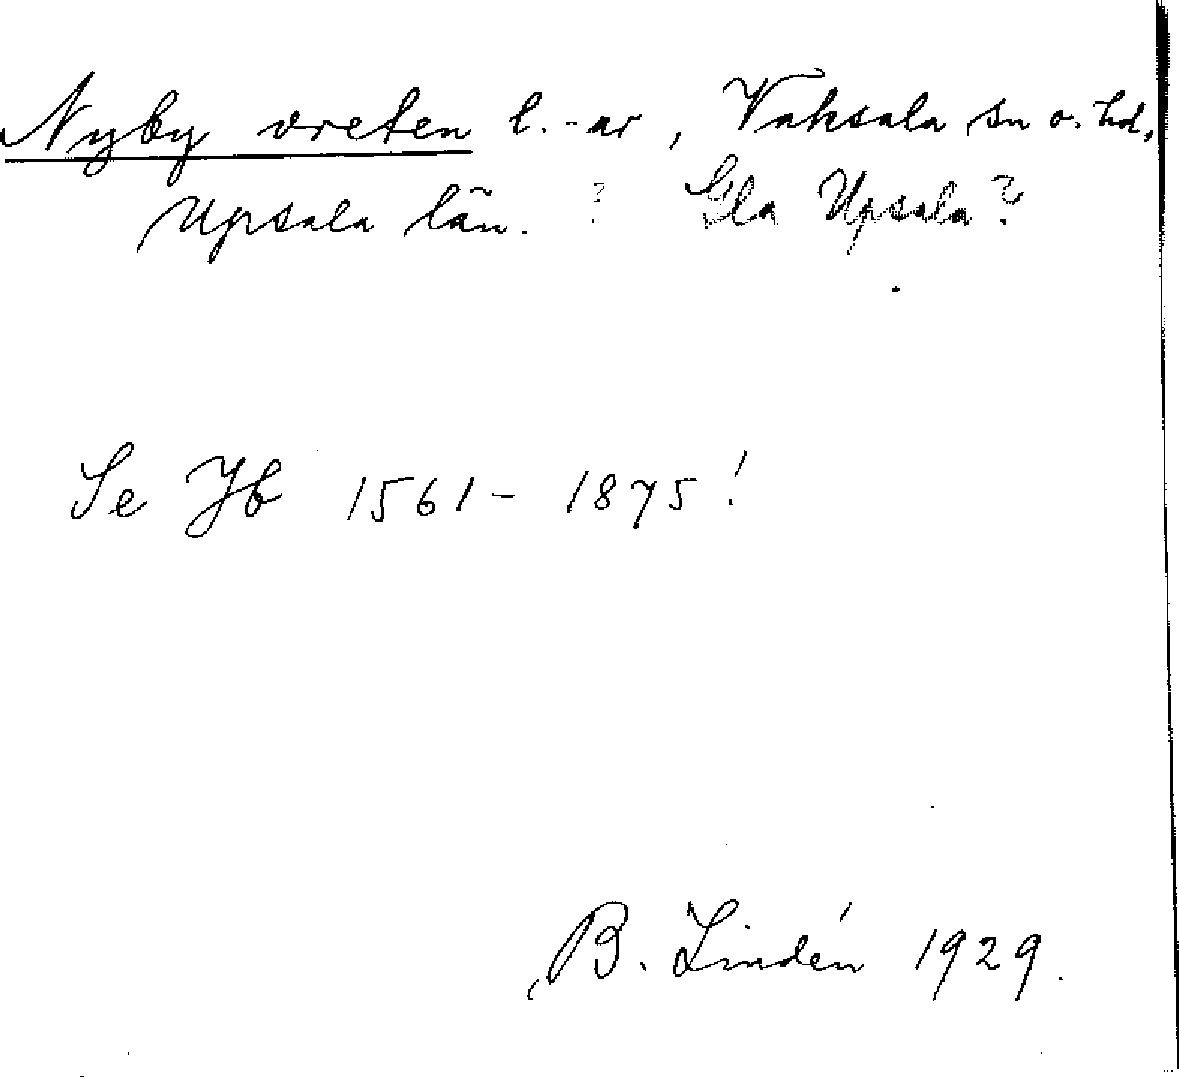 Nyby vreten l. -ar, Vaksala sn o. hd,
Upsala län. ? Gla Upsala?
Se Jb 1561 - 1875!
B. Lindén 1929.